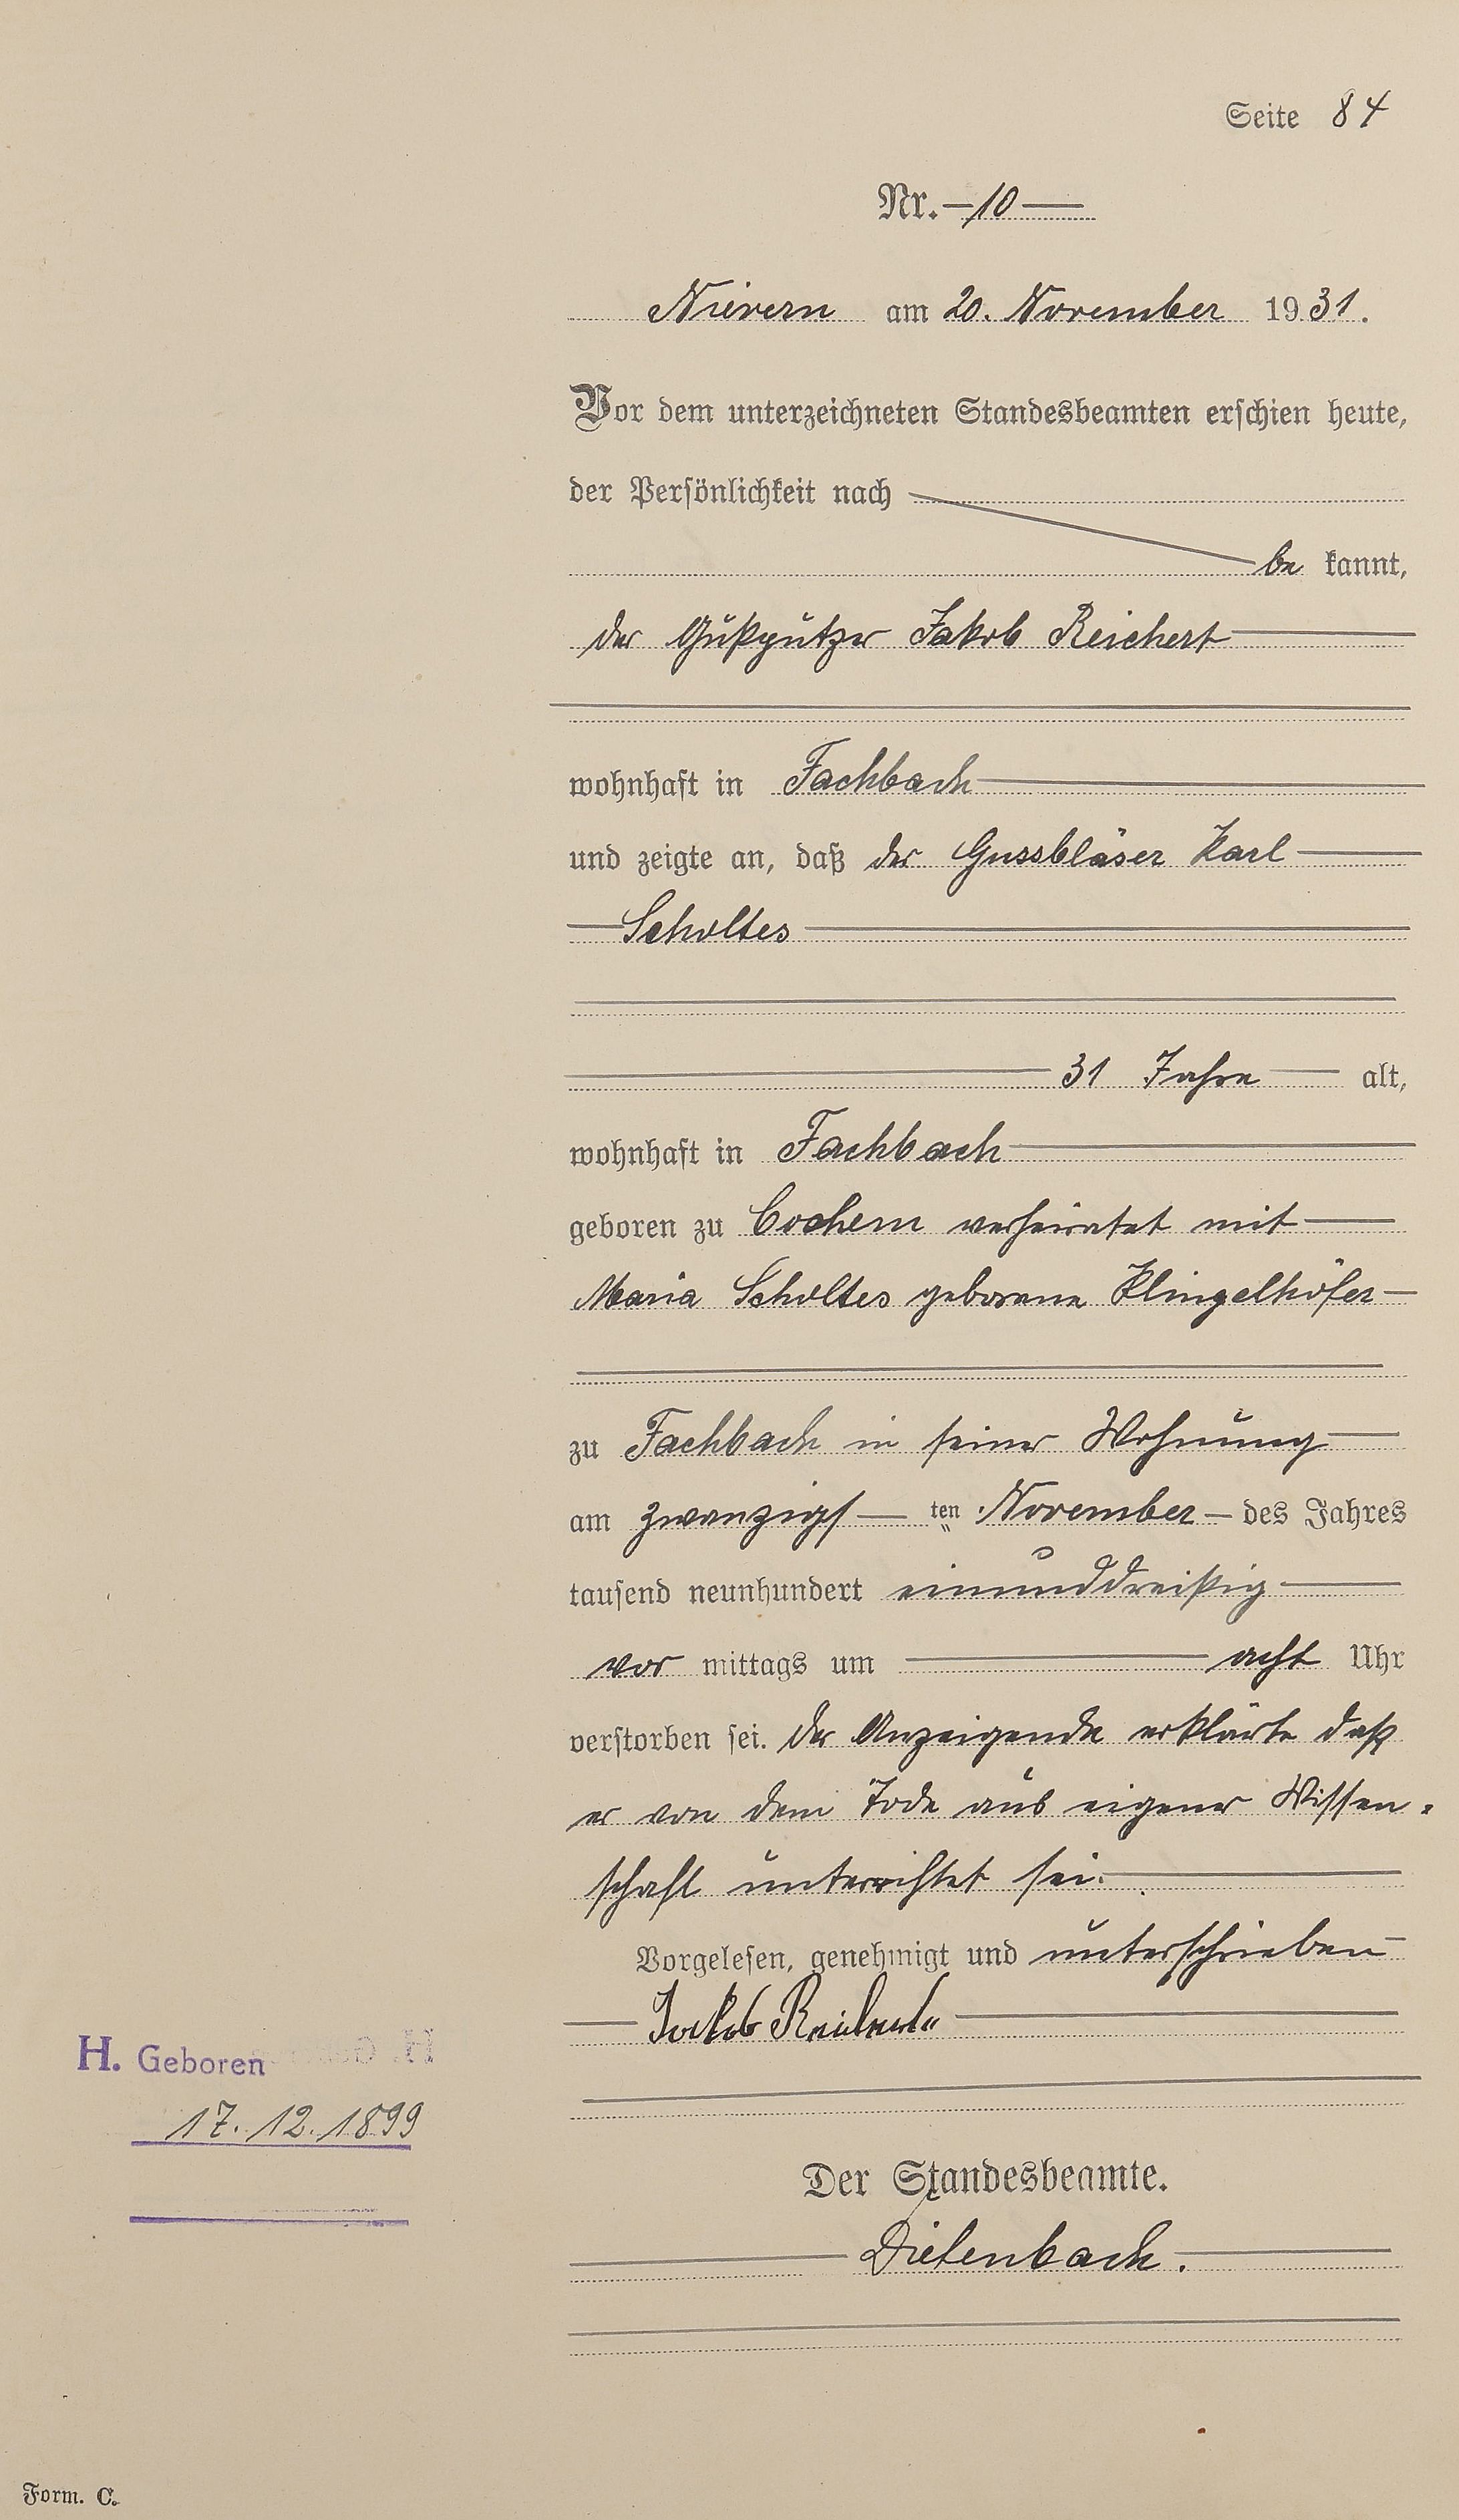 Seite 84
Nr. 10
Nievern am 20. November 1931.
Vor dem unterzeichneten Standesbeamten erschien heute,
der Persönlichkeit nach
be kannt,
der Gußputzer Jakob Reichert
wohnhaft in Fachbach
und zeigte an, daß der Gussbläser Karl
Scholtes
31 Jahre alt,
wohnhaft in Fachbach
geboren zu Cochem verheiratet mit
Maria Scholtes geborene Klingelhöfer
zu Fachbach in seiner Wohnung
am zwanzigs ten November des Jahres
tausend neunhundert einunddreißig
vor mittags um acht Uhr
verstorben sei. Der Anzeigende erklärte daß
er von dem Tode aus eigener Wissen-
schaft unterrichtet sei.
Vorgelesen, genehmigt und unterschrieben
Jakob Reichert
H. Geboren
17. 12. 1899
Der Standesbeamte.
Dietenbach.
Form. C.